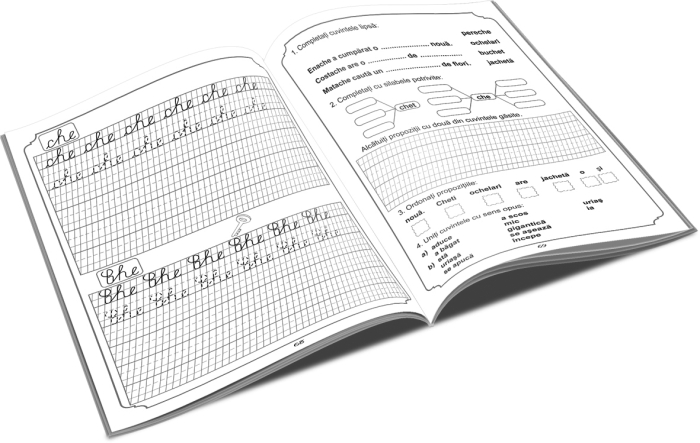 che
che che che che che che
che che che che che che
Che
Che Che Che Che Che Che
Che Che Che Che Che Che
68
1. Completați cuvintele lipsă:
Enache a cumpărat o .................. nouă. pereche
Costache are o .............. de .............. ochelari
Matache caută un .................. de flori. buchet
jachetă
2. Completați cu silabele potrivite:
chet che
Alcătuiți propoziții cu două din cuvintele găsite.
3. Ordonați propozițiile:
nouă. Cheti ochelari are jachetă o și
4. Uniți cuvintele cu sens opus:
a) aduce a scos uriaș
a băgat mic ia
stă gigantică
b) uriașă se așează
se apucă începe
69